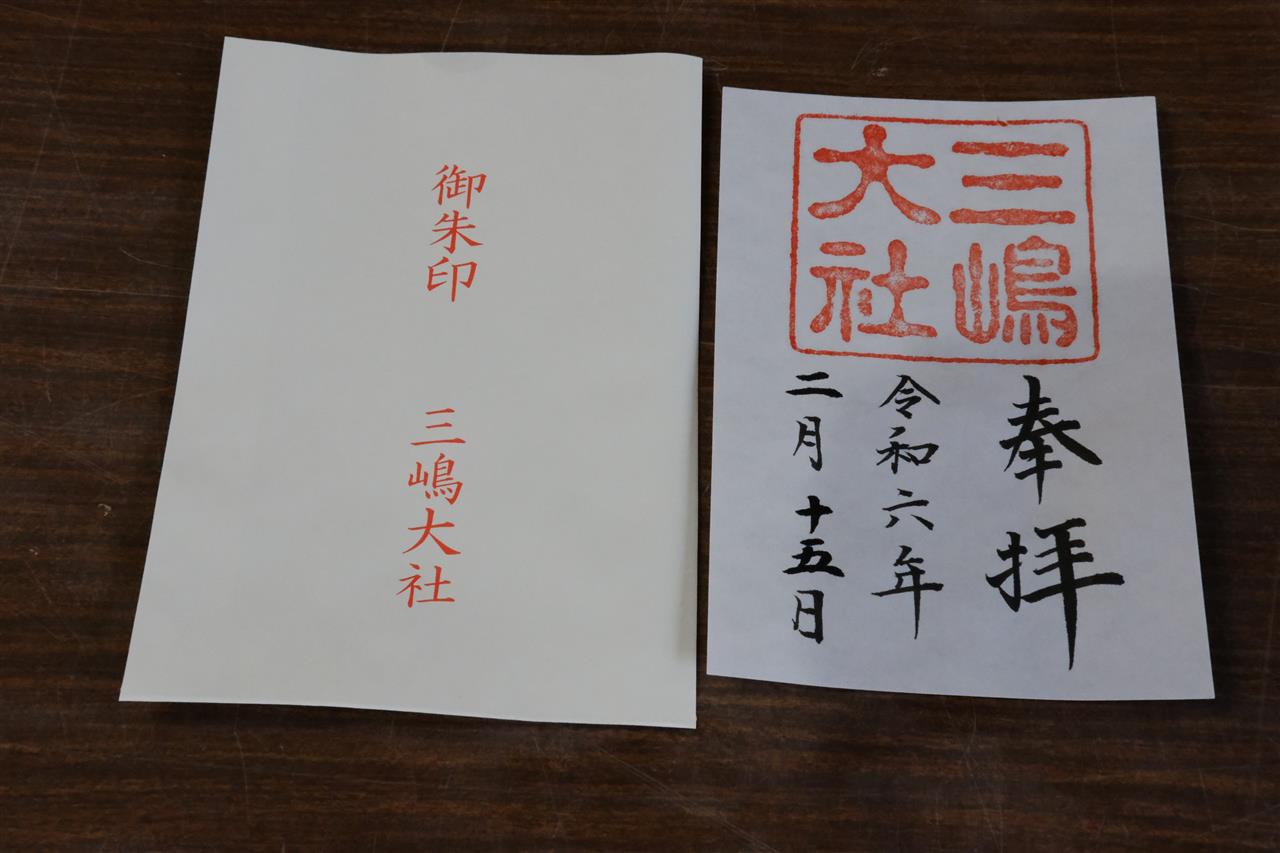 御朱印 三嶋大社
三嶋
大社
奉拝
令和六年
二月十五日